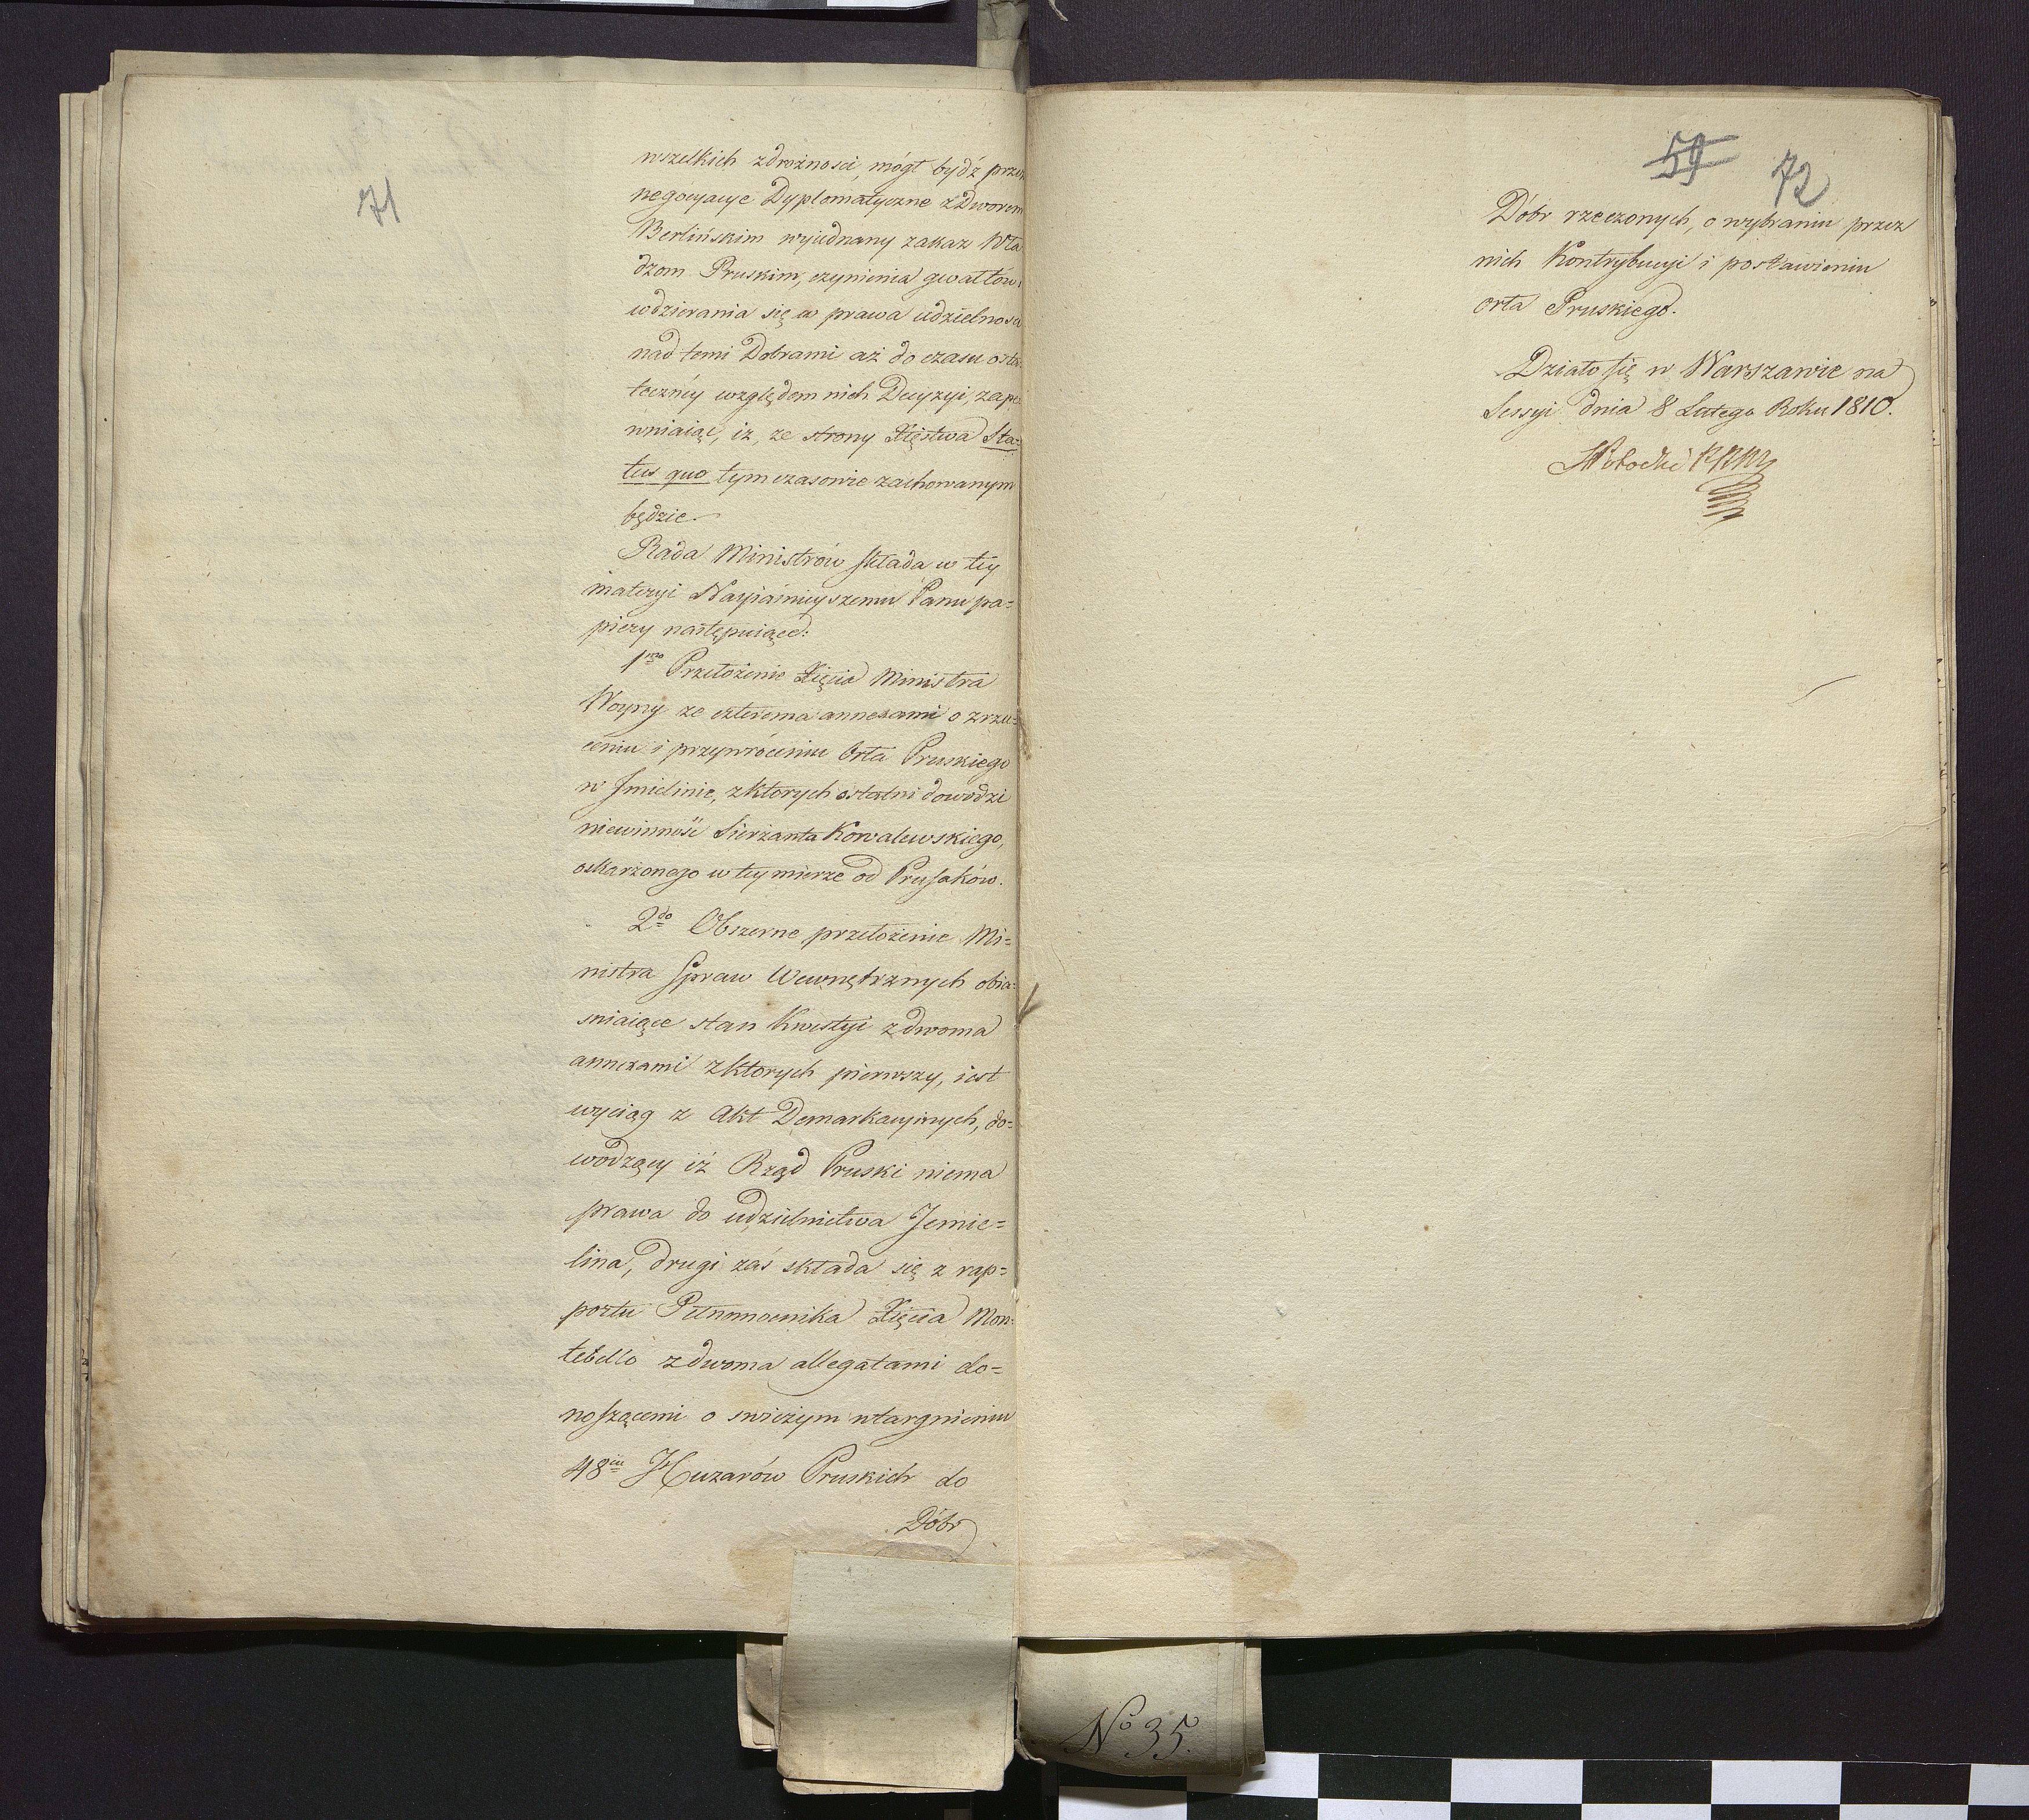 71
wszelkich zdrożnosci, mógł bydź przez
negocyacye Dyplomatyczne z Dworem
Berlińskim wyiednany zakaz Wła
dzom Pruskim, czynienia gwałtów i
wdzierania się w prawa udzielnosci
nad temi Dobrami aż do czasu osta-
teczney względem nich Decyzyi, zape
wniaiąc, iż, ze strony Xięstwa Sta=
tus quo tymczasowie zachowanym
będzie.
Rada Ministrów składa w tey
materyi Nayiaśnieyszemu Panu pa=
piery następuiące:
1mo Przełożenie Xięcia Ministra
Woyny ze czterema annexami o zrzu=
ceniu i przywróceniu Orła Pruskiego
w Jmielinie, z których ostatni dowodzi
niewinność Sierżanta Kowalewskiego,
oskarżonego w tey mierze od Prusaków.
2do Obszerne przełożenie Mi=
nistra Spraw Wewnętrznych obia=
sniaiące stan Kwestyi z dwoma
annexami z których pierwszy, iest
wyciąg z Akt Demarkacyinych, do=
wodzący iż Rząd Pruski niema
prawa do udzielnictwa Jemie=
lina, drugi zaś składa się z rap=
portu Pełnomocnika Xięcia Mon=
tebello z dwoma allegatami do=
noszącemi o swieżym wtargnieniu
48iu Huzarów Pruskich do
Dóbr
59 72
Dóbr rzeczonych, o wybraniu przez
nich Kontrybucyi i postawieniu
orła Pruskiego.
Działo się w Warszawie na
Sessyi dnia 8 Lutego Roku 1810.
No 35.